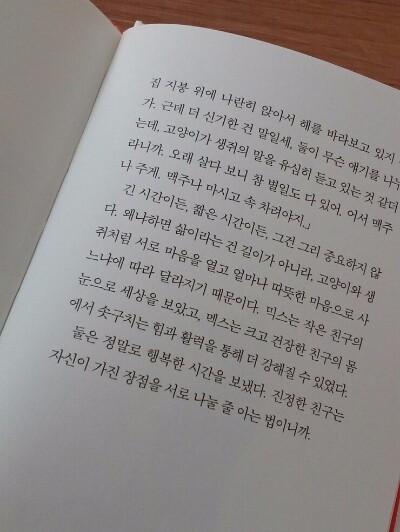 집 지붕 위에 나란히 앉아서 해를 바라보고 있지
가. 근데 더 신기한 건 말일세, 둘이 무슨 얘기를 나누
는데, 고양이가 생쥐의 말을 유심히 듣고 있는 것 같더
라니까. 오래 살다 보니 참 별일도 다 있어. 어서 맥주
나 주게. 맥주나 마시고 속 차려야지.」
긴 시간이든, 짧은 시간이든, 그건 그리 중요하지 않
다. 왜냐하면 삶이라는 건 길이가 아니라, 고양이와 생
쥐처럼 서로 마음을 열고 얼마나 따뜻한 마음으로 사
느냐에 따라 달라지기 때문이다. 믹스는 작은 친구의
눈으로 세상을 보았고, 멕스는 크고 건장한 친구의 몸
에서 솟구치는 힘과 활력을 통해 더 강해질 수 있었다.
둘은 정말로 행복한 시간을 보냈다. 진정한 친구는
자신이 가진 장점을 서로 나눌 줄 아는 법이니까.